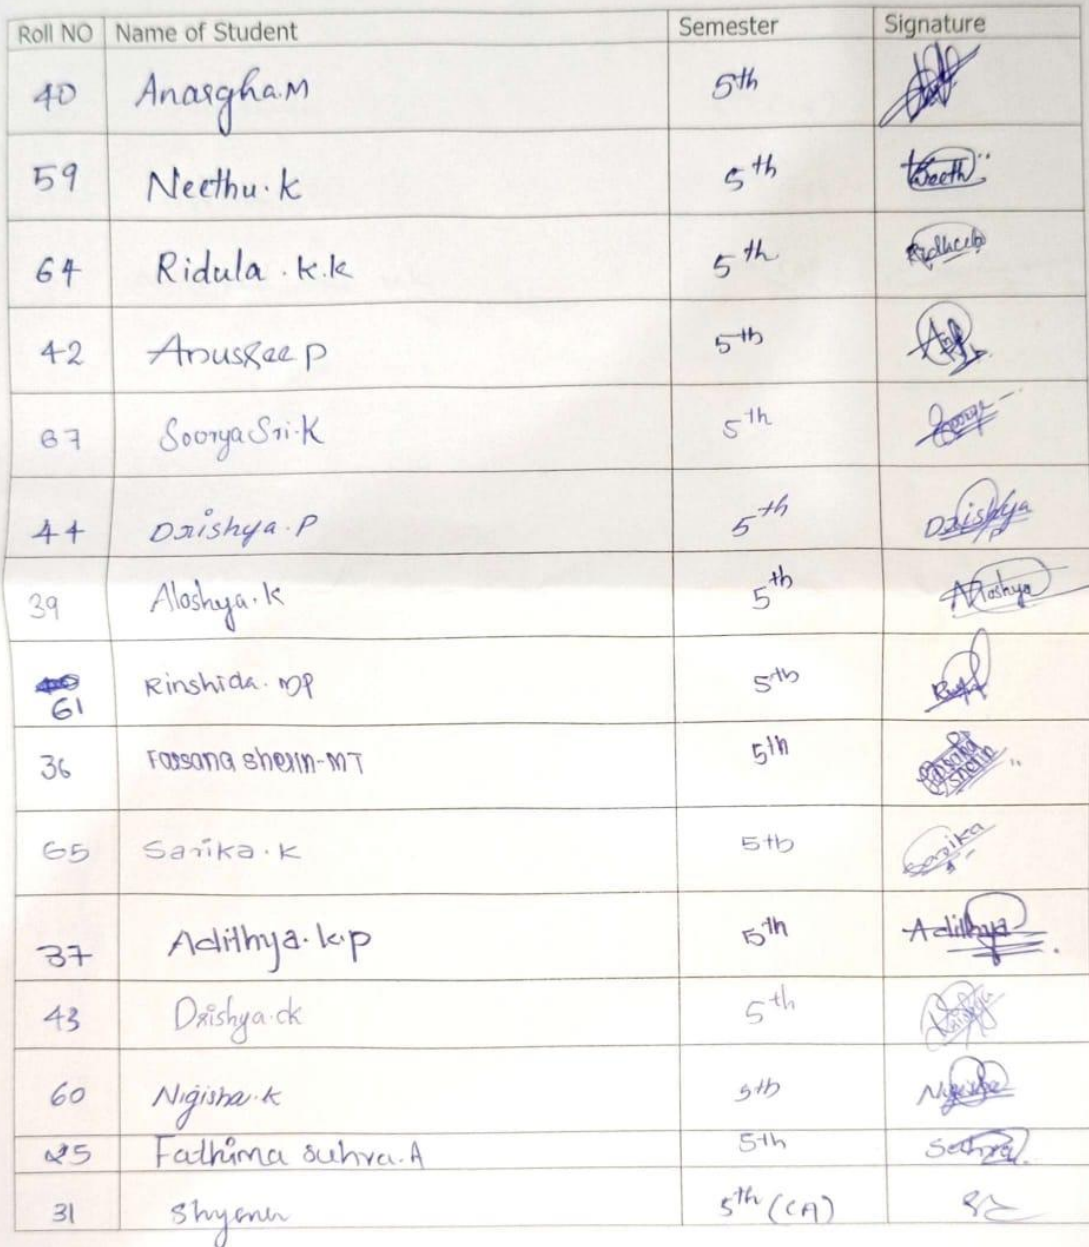 Roll NO Name of Student Semester Signature
40 Anargha.M 5th
59 Neethu.K 5th
64 Ridula.k.k 5th
42 Anusree P 5th
67 Soorya Sri.K 5th
44 Drishya.P 5th Drishya
39 Aloshya.K 5th Aloshya
61 Rinshida.MP 5th
36 Farsana sherin-MT 5th Farsana sherin
65 Sarika.K 5th Sarika
37 Adithya.k.p 5th Adithya
43 Drishya.ck 5th Drishya
60 Nigisha.K 5th
25 Fathima suhra.A 5th
31 5th (CA)